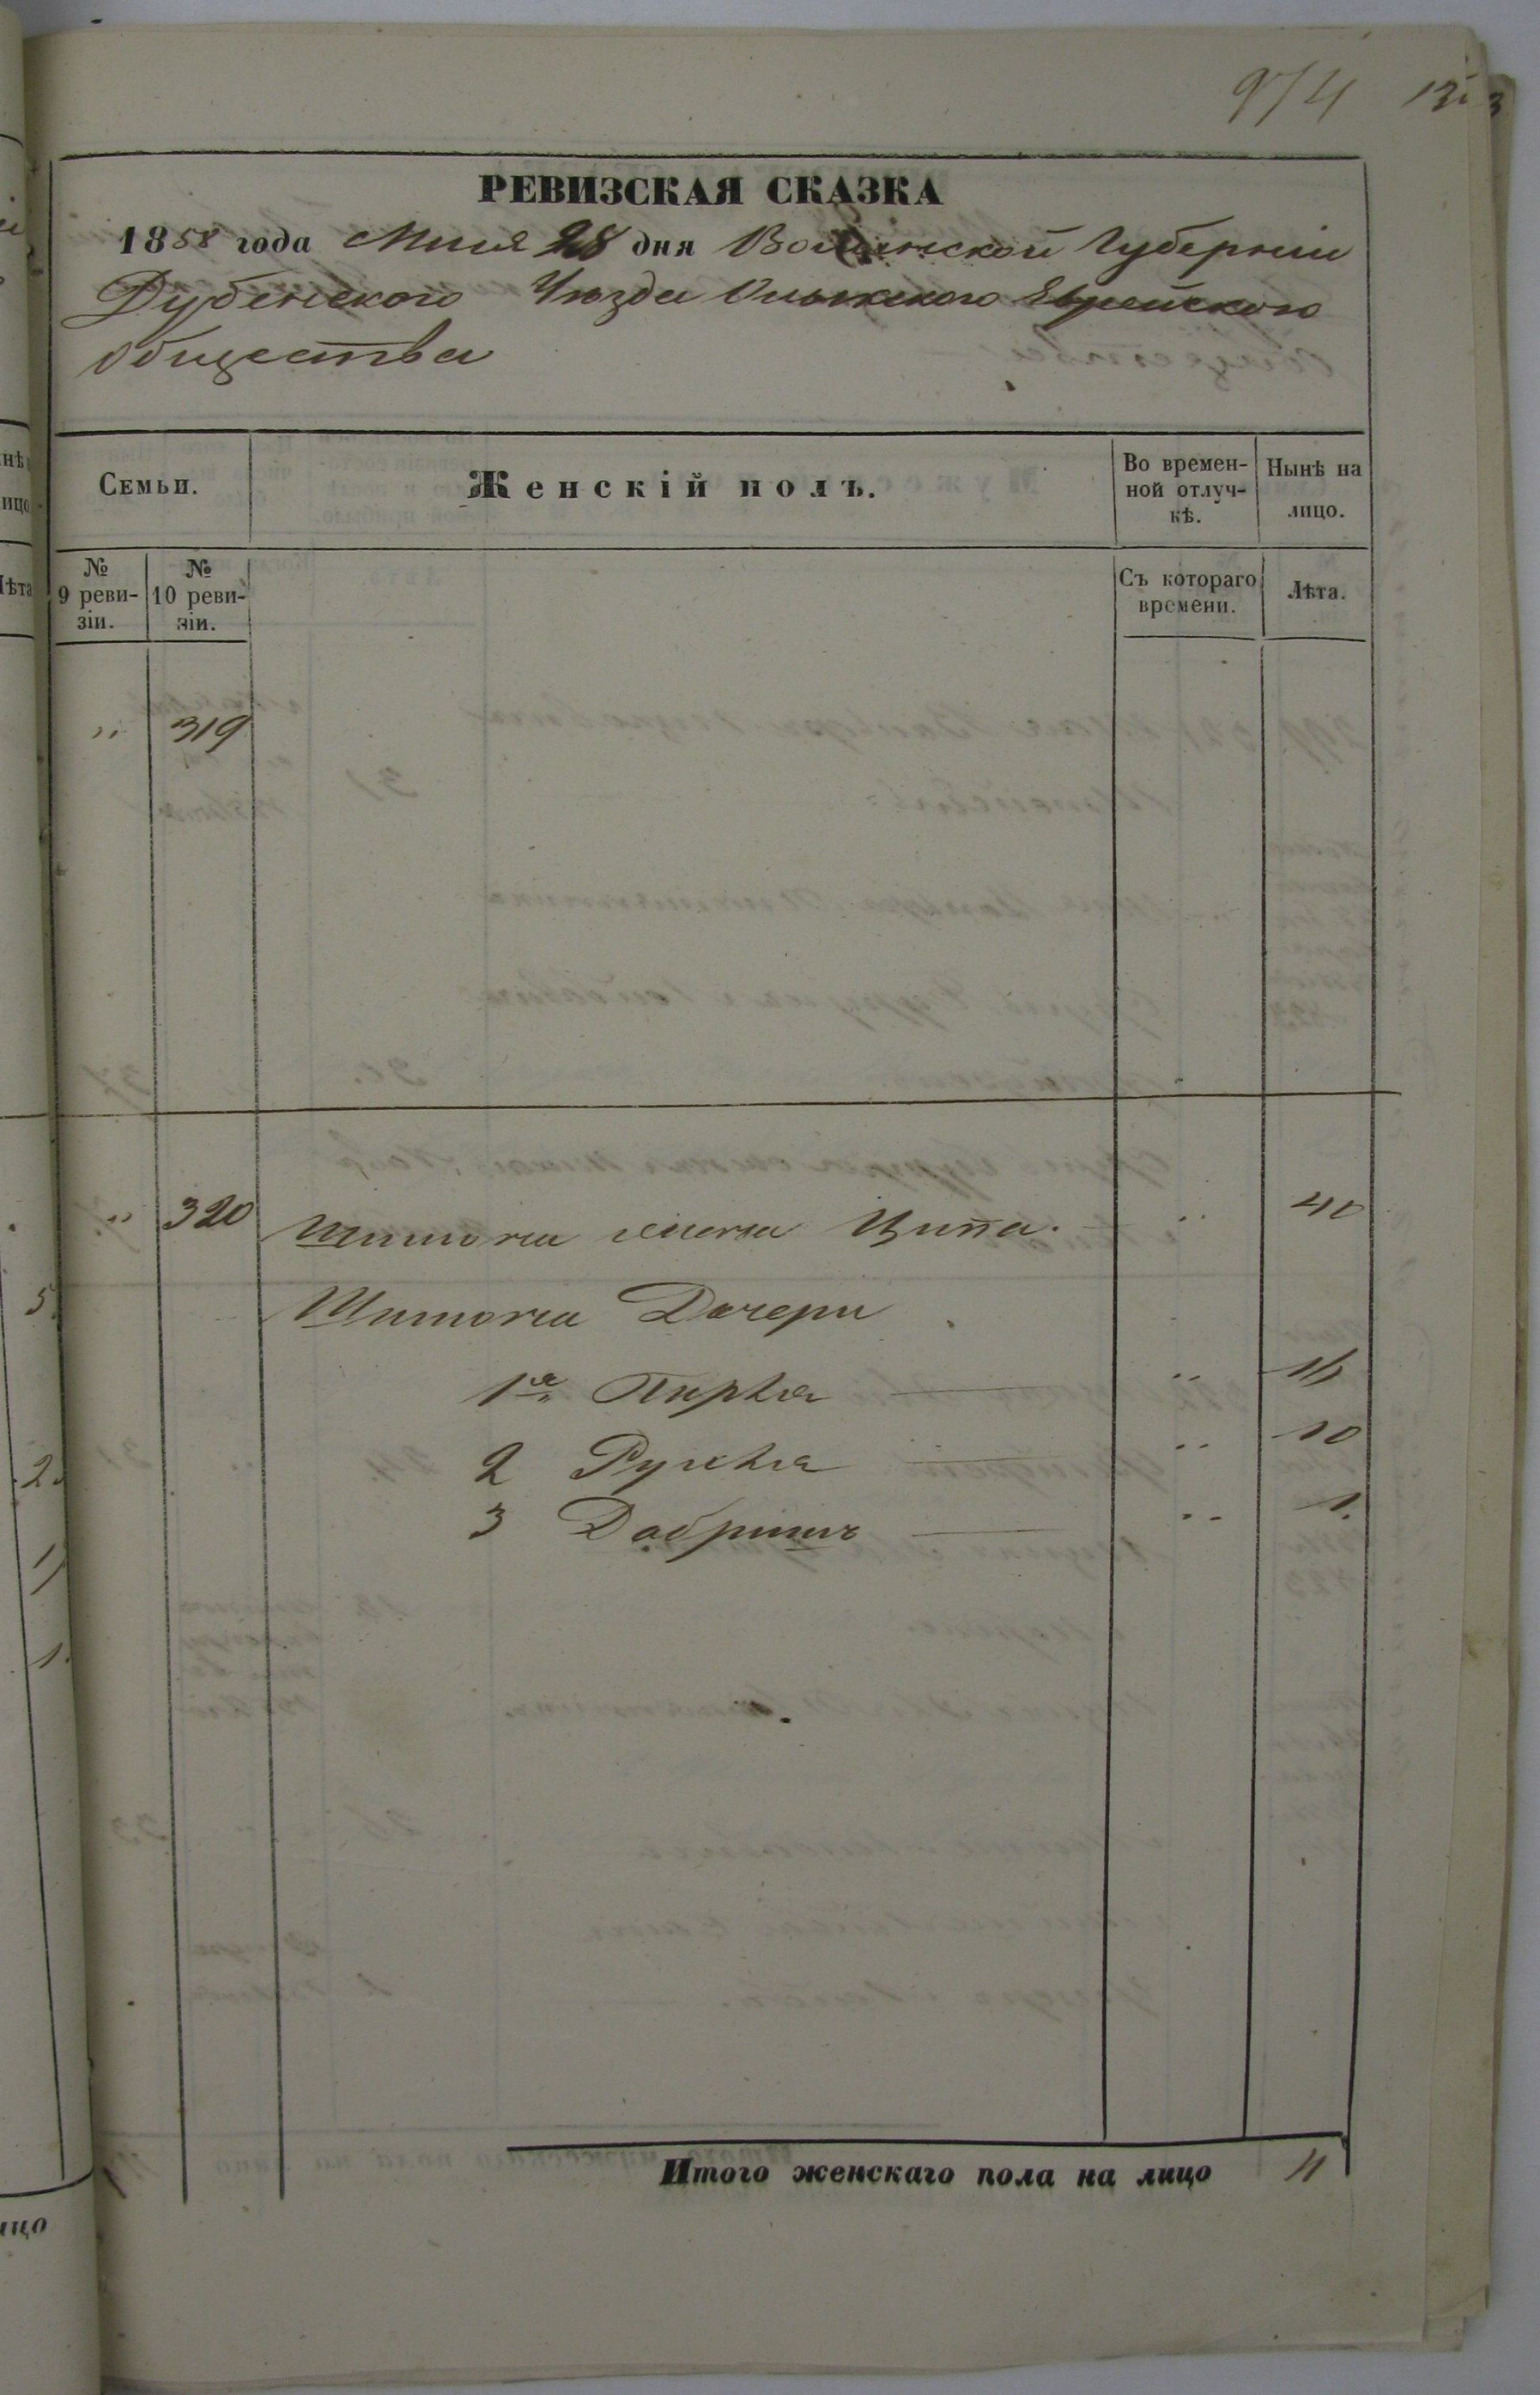 974
РЕВИЗСКАЯ СКАЗКА
1858 года Маия 28 дня Волынской Губерніи
Дубенского Уѣзда Олыкского Еврейского
Общества
Семьи.
Женскій полъ.
Во времен-
ной отлуч-
кѣ.
Нынѣ на
лицо.
№
9 реви-
зіи.
№
10 реви-
зіи.
Съ котораго
времени.
Лѣта.
" 319
" 320 жена Ципа. " 40
Дочери
1я Пирля " 16
2 Рухля " 10
3 Добришъ " 1.
Итого женскаго пола на лицо 4